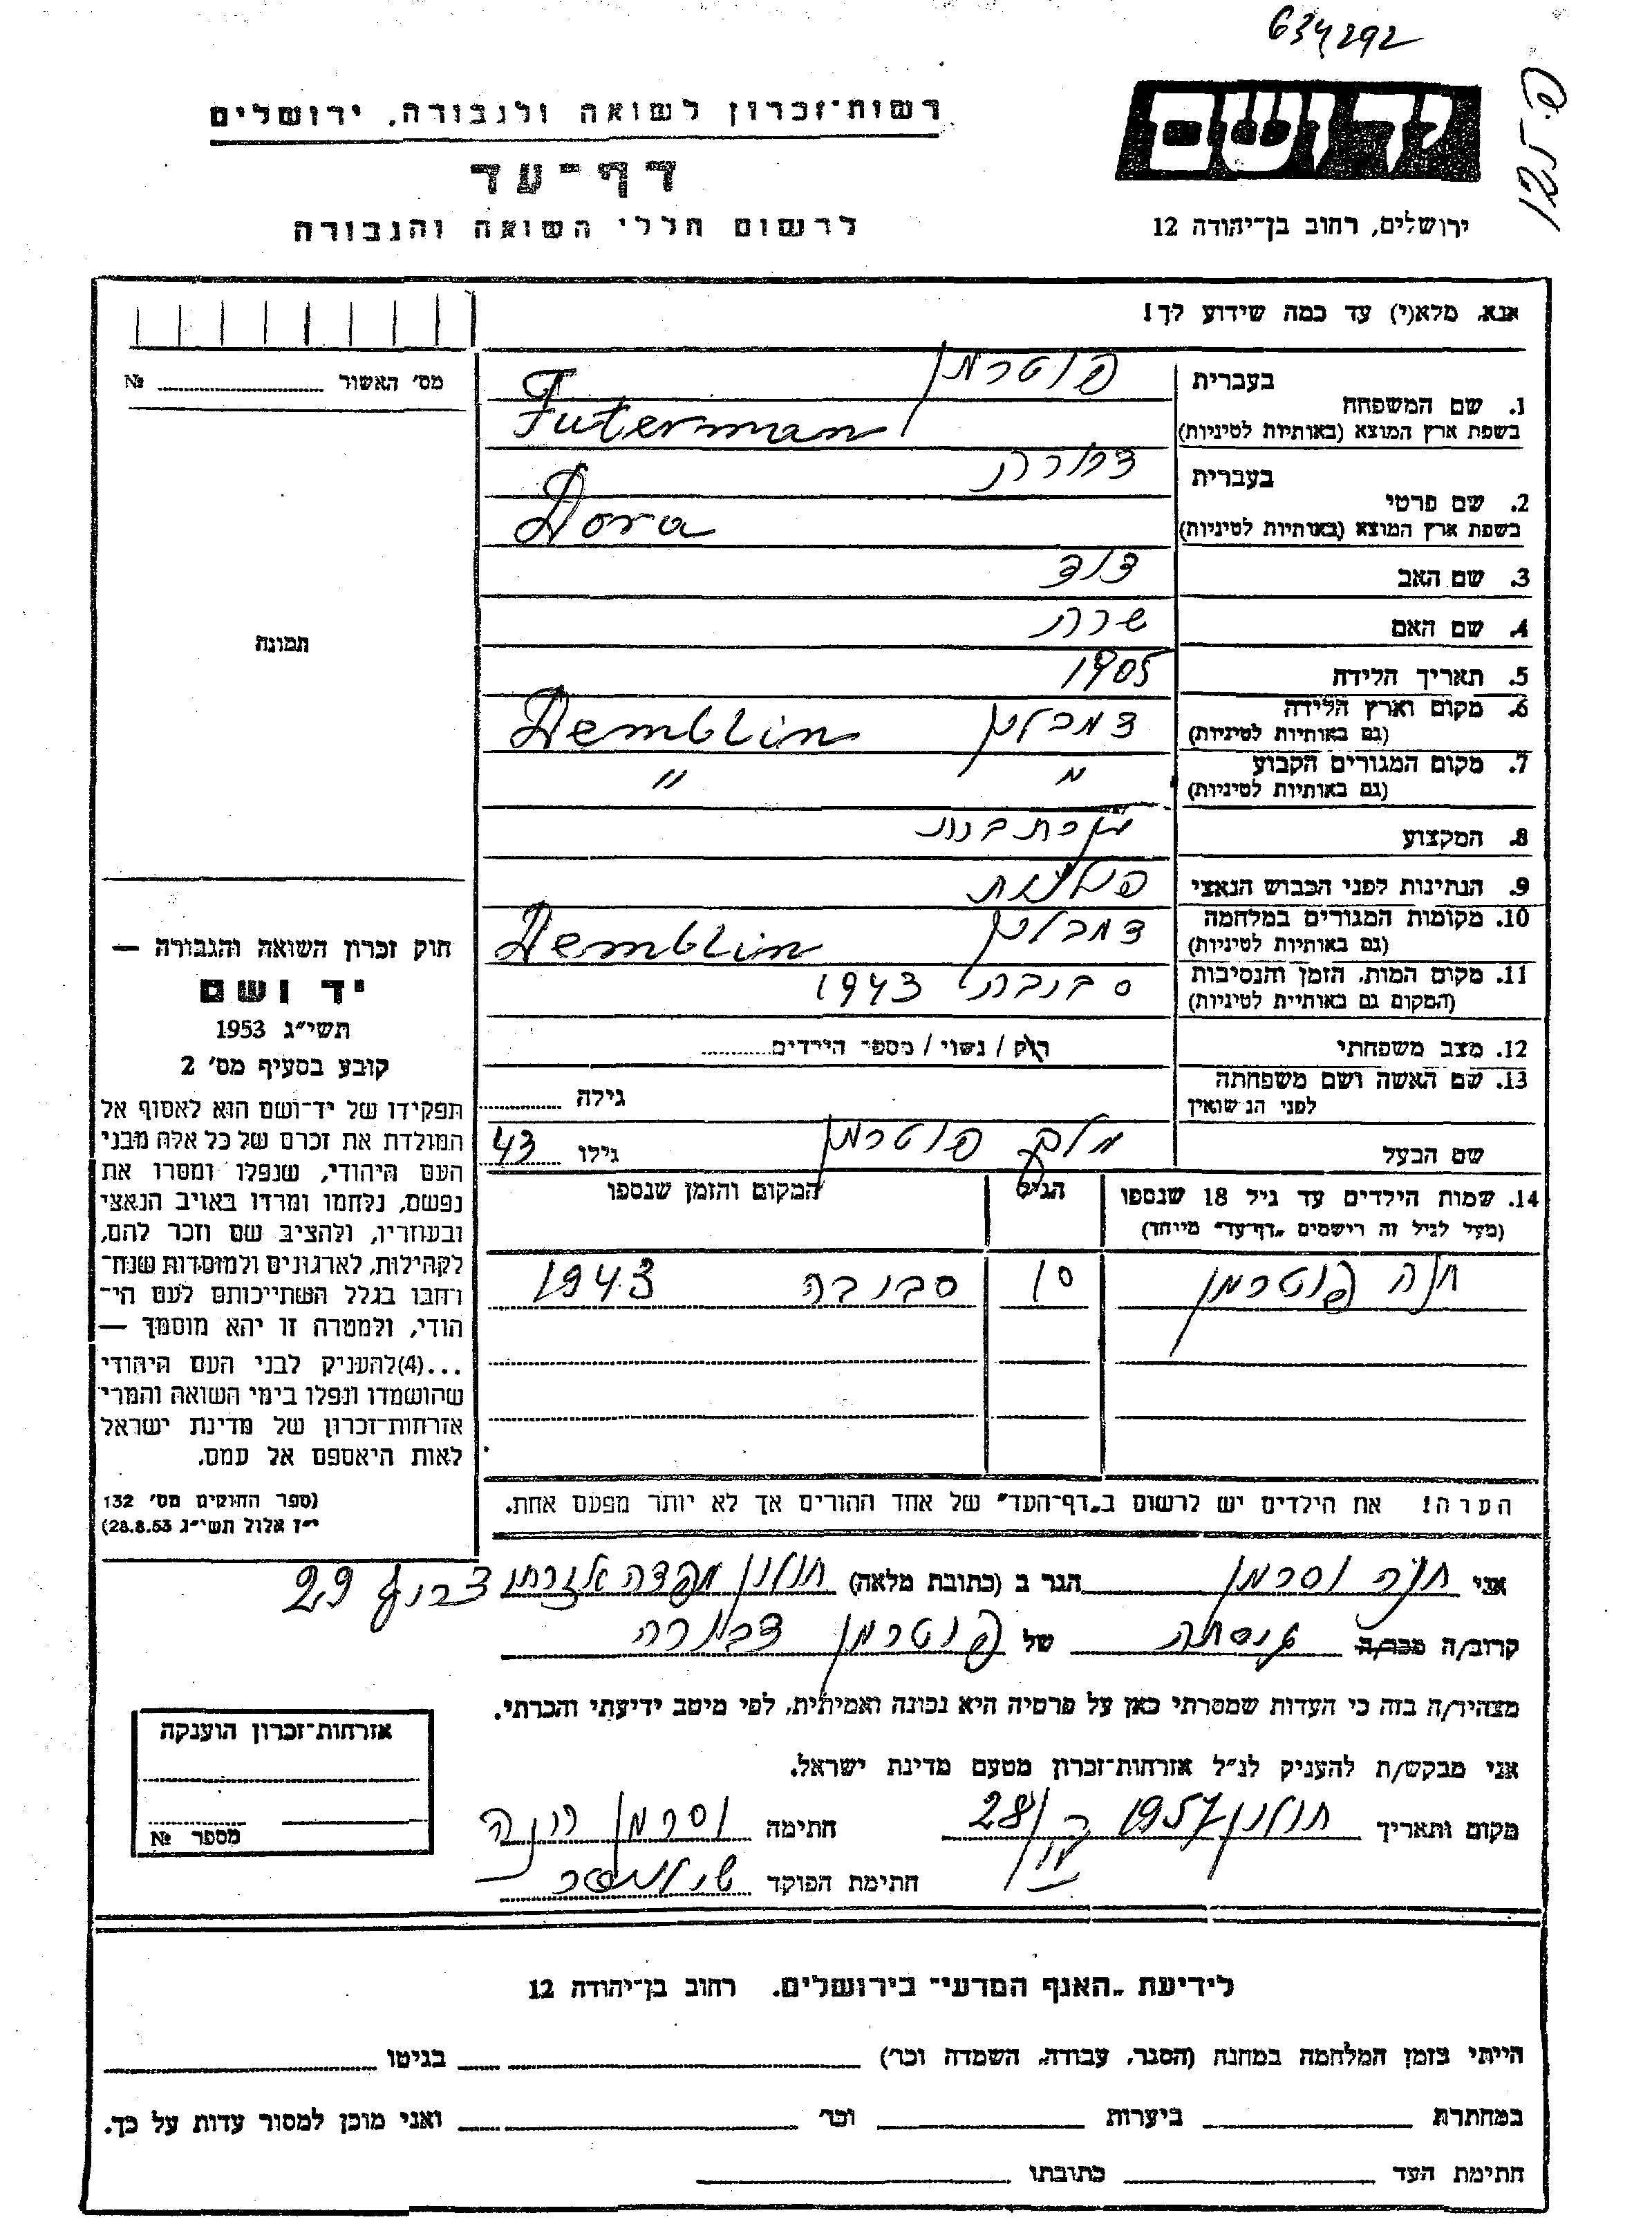 634292
125 פ.
יד ושם
רשות־זכרון לשואה ולגבורה, ירושלים
דף־עד
לרשום חללי השואה והגבורה
ירושלים, רחוב בן־יהודה 12
אנא, מלא(י) עד כמה שידוע לך!
מס' האשור № 
תמונה
1. שם המשפחה
בעברית פוטרמן
בשפת ארץ המוצא (באותיות לטיניות) Futerman
2. שם פרטי
בעברית דבורה
בשפת ארץ המוצא (באותיות לטיניות) Dora
3. שם האב דוד
4. שם האם שרה
5. תאריך הלידה 1905
6. מקום וארץ הלידה דמבלין Demblin
(גם באותיות לטיניות)
7. מקום המגורים הקבוע " "
(גם באותיות לטיניות)
8. המקצוע
9. הנתינות לפני הכבוש הנאצי פולנית
10. מקומות המגורים במלחמה דמבלין Demblin
(גם באותיות לטיניות)
11. מקום המות, הזמן והנסיבות 1943
(המקום גם באותיות לטיניות)
12. מצב משפחתי רוק / נשוי / מספר הילדים
13. שם האשה ושם משפחתה
לפני הנישואין גילה
שם הבעל פוטרמן גילו 43
14. שמות הילדים עד גיל 18 שנספו הגיל המקום והזמן שנספו
(מעל לגיל זה רישמים "דף־עד" מיוחד)
חנה פוטרמן 10 סבובה 1943
הערה! את הילדים יש לרשום ב"דף־העד" של אחד ההורים אך לא יותר מפעם אחת.
חוק זכרון השואה והגבורה —
יד ושם
תשי"ג 1953
קובע בסעיף מס' 2
תפקידו של יד־ושם הוא לאסוף אל
המולדת את זכרם של כל אלה מבני
העם היהודי, שנפלו ומסרו את
נפשם, נלחמו ומרדו באויב הנאצי
ובעוזריו, ולהציב שם וזכר להם,
לקהילות, לארגונים ולמוסדות שנח־
רחבו בגלל השתייכותם לעם הי־
הודי, ולמטרה זו יהא מוסמך —
...(4)להעניק לבני העם היהודי
שהושמדו ונפלו בימי השואה והמרי
אזרחות־זכרון של מדינת ישראל
לאות היאספם אל עמם.
(ספר החוקים מס' 132
י"ז אלול תשי"ג 28.8.53)
אני חנה וסרמן הגר ב (כתובת מלאה) חולון 29
קרוב/ה מכר/ה של פוטרמן דבורה
מצהיר/ה בזה כי העדות שמסרתי כאן על פרטיה היא נכונה ואמיתית, לפי מיטב ידיעתי והכרתי.
אני מבקש/ת להעניק לנ"ל אזרחות־זכרון מטעם מדינת ישראל.
מקום ותאריך חולון 1957 28 חתימה וסרמן חנה
חתימת הפוקד
אזרחות־זכרון הוענקה
מספר №
לידיעת "האנף המדעי" בירושלים. רחוב בן־יהודה 12
הייתי בזמן המלחמה במחנה (הסגר, עבודה, השמדה וכר') בגיטו
במחתרת ביערות וכר' ואני מוכן למסור עדות על כך.
חתימת העד כתובתו